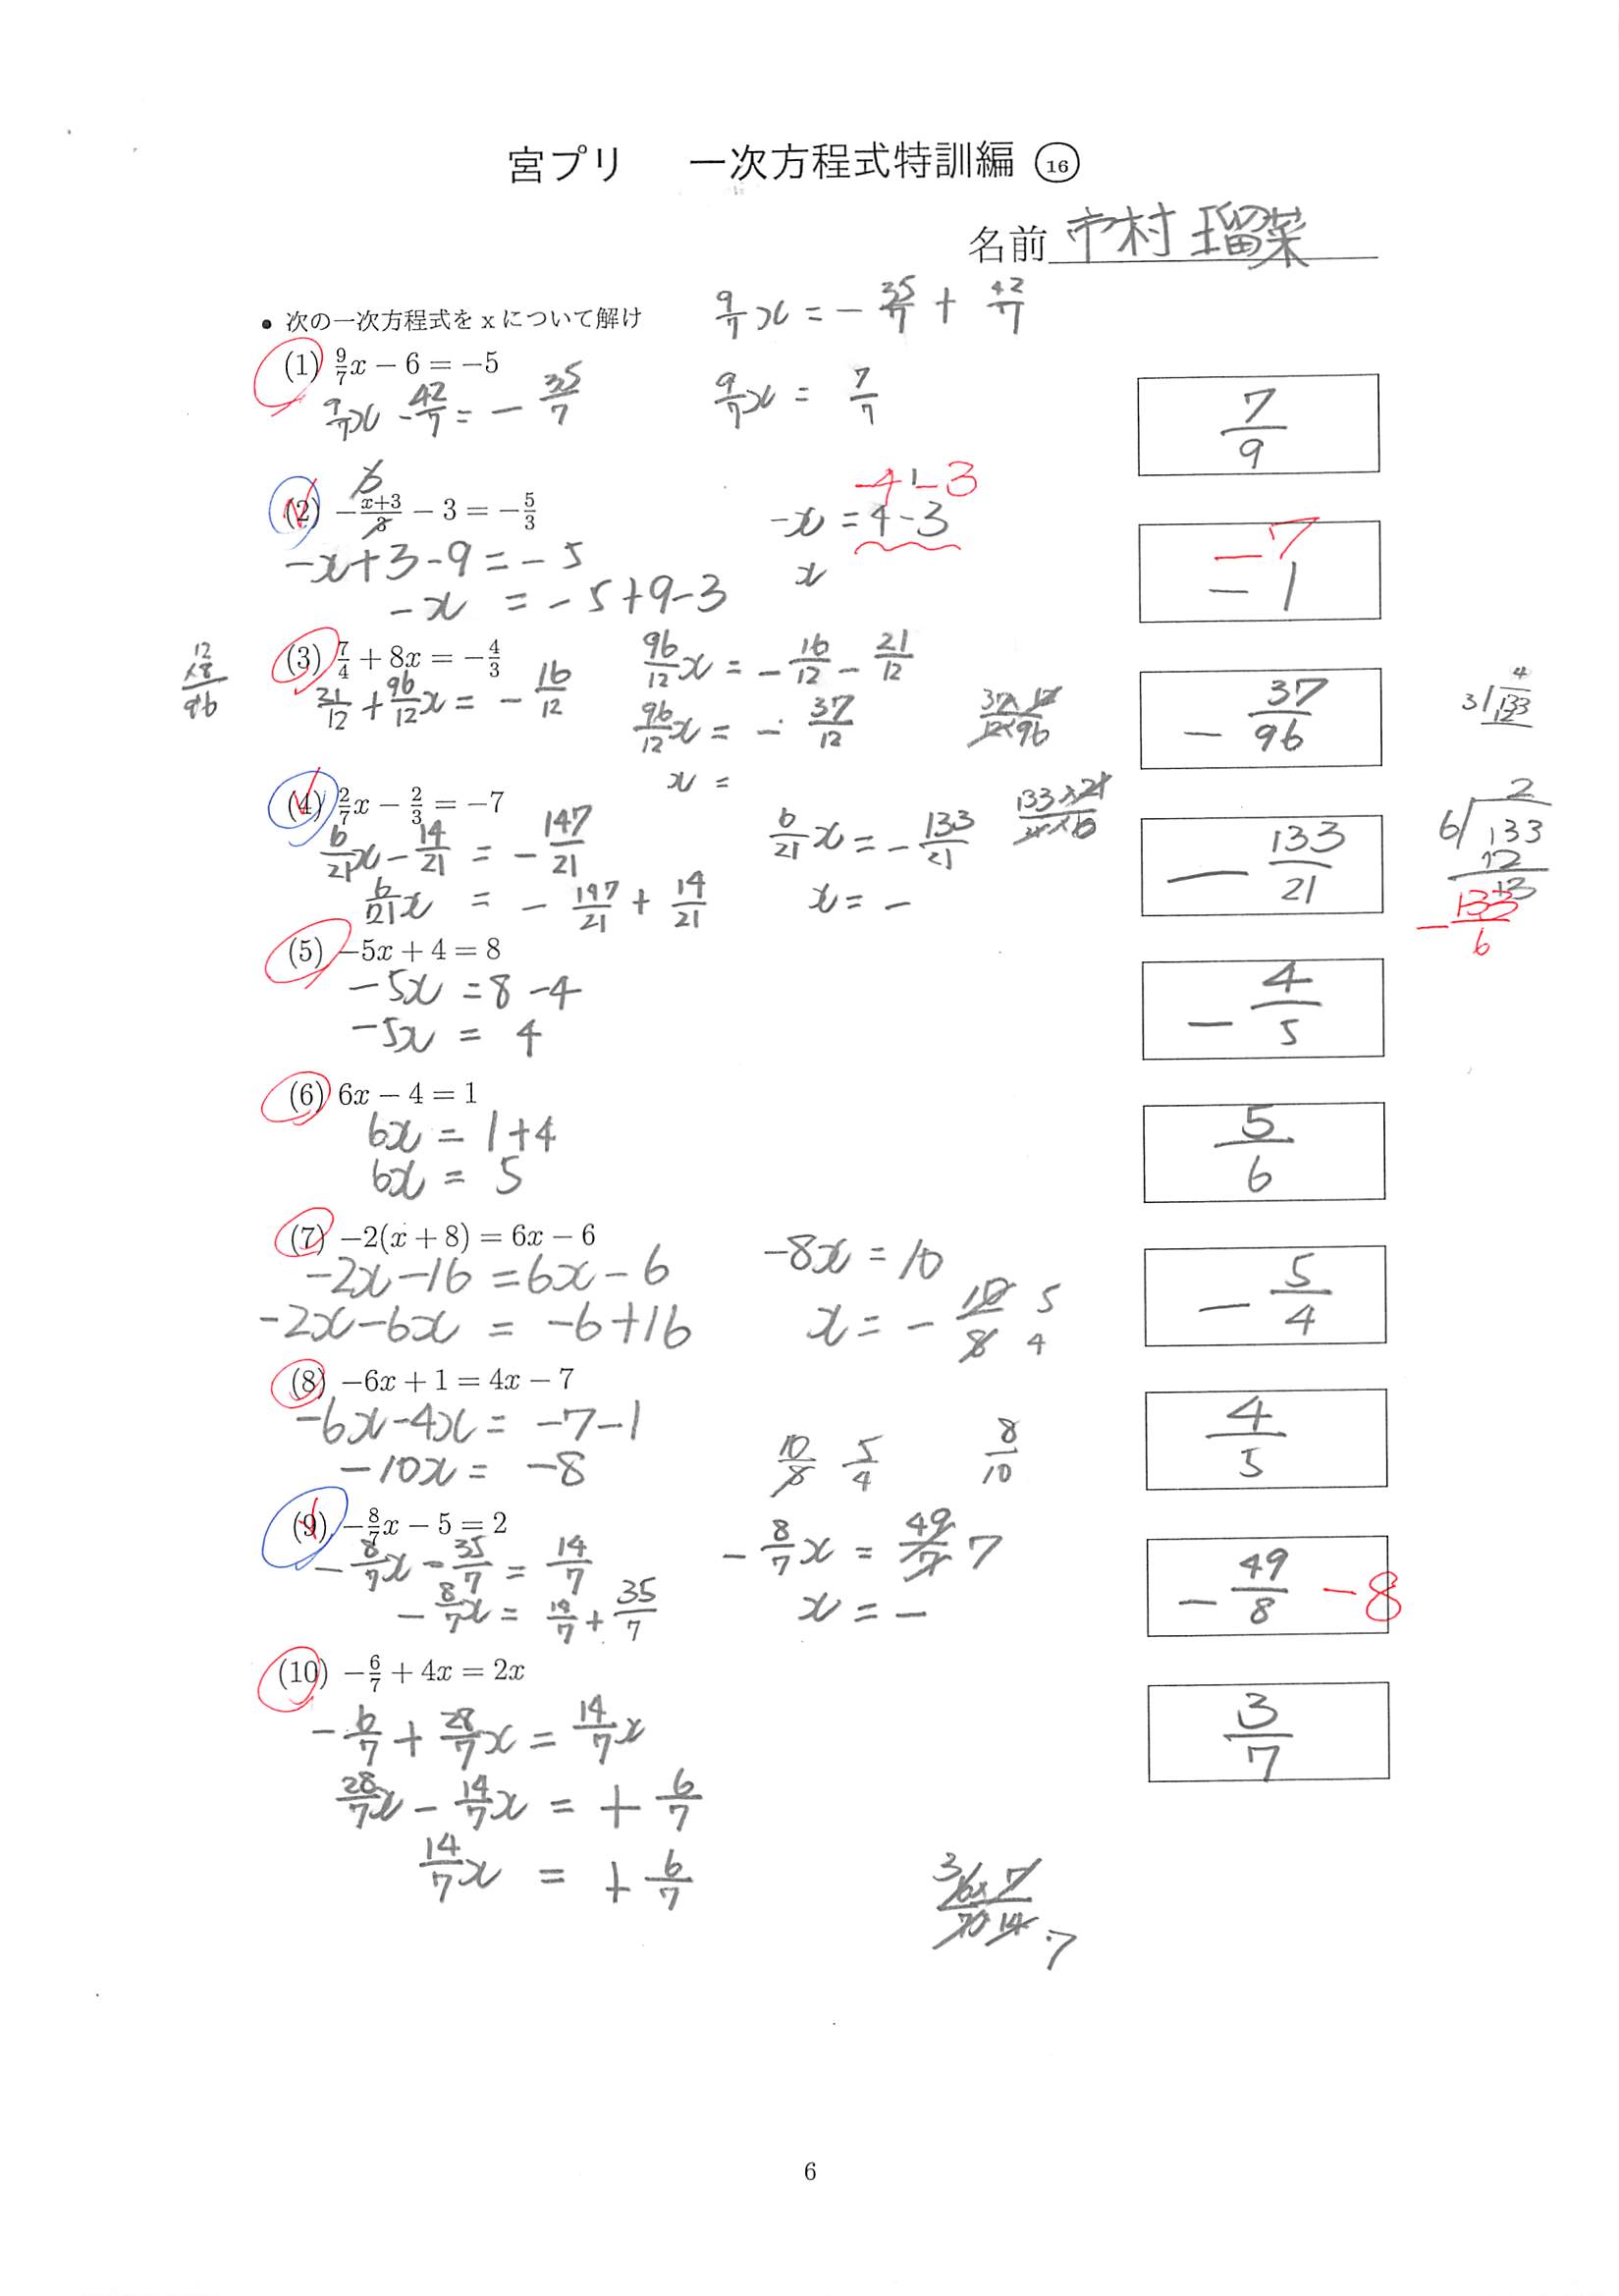 宮プリ 一次方程式特訓編 ⑯
名前 市村 瑠菜
• 次の一次方程式を x について解け
9/7 x = - 35/7 + 42/7
(1) 9/7 x − 6 = −5
9/7 x - 42/7 = - 35/7
9/7 x = 7/7
7/9
(2) − x+3/3 − 3 = − 5/3
-4-3
-x = 4-3
-x+3-9 = -5
x
-x = -5+9-3
-7
-1
(3) 7/4 + 8x = − 4/3
12
×8
96
21/12 + 96/12 x = - 16/12
96/12 x = - 16/12 - 21/12
96/12 x = - 37/12
37×12/12×96
x =
- 37/96
4
3)133
12
(4) 2/7 x − 2/3 = −7
6/21 x - 14/21 = - 147/21
6/21 x = - 147/21 + 14/21
6/21 x = - 133/21
133×21/21×6
x = -
- 133/21
2
6)133
12
13
- 133/6
(5) −5x + 4 = 8
-5x = 8-4
-5x = 4
- 4/5
(6) 6x − 4 = 1
6x = 1+4
6x = 5
5/6
(7) −2(x + 8) = 6x − 6
-2x-16 = 6x-6
-2x-6x = -6+16
-8x = 10
x = - 10/8 5/4
- 5/4
(8) −6x + 1 = 4x − 7
-6x-4x = -7-1
-10x = -8
10/8 5/4 8/10
4/5
(9) − 8/7 x − 5 = 2
- 8/7 x - 35/7 = 14/7
- 8/7 x = 14/7 + 35/7
- 8/7 x = 49/7 7
x = -
- 49/8 -8
(10) − 6/7 + 4x = 2x
- 6/7 + 28/7 x = 14/7 x
28/7 x - 14/7 x = + 6/7
14/7 x = + 6/7
3/7
6